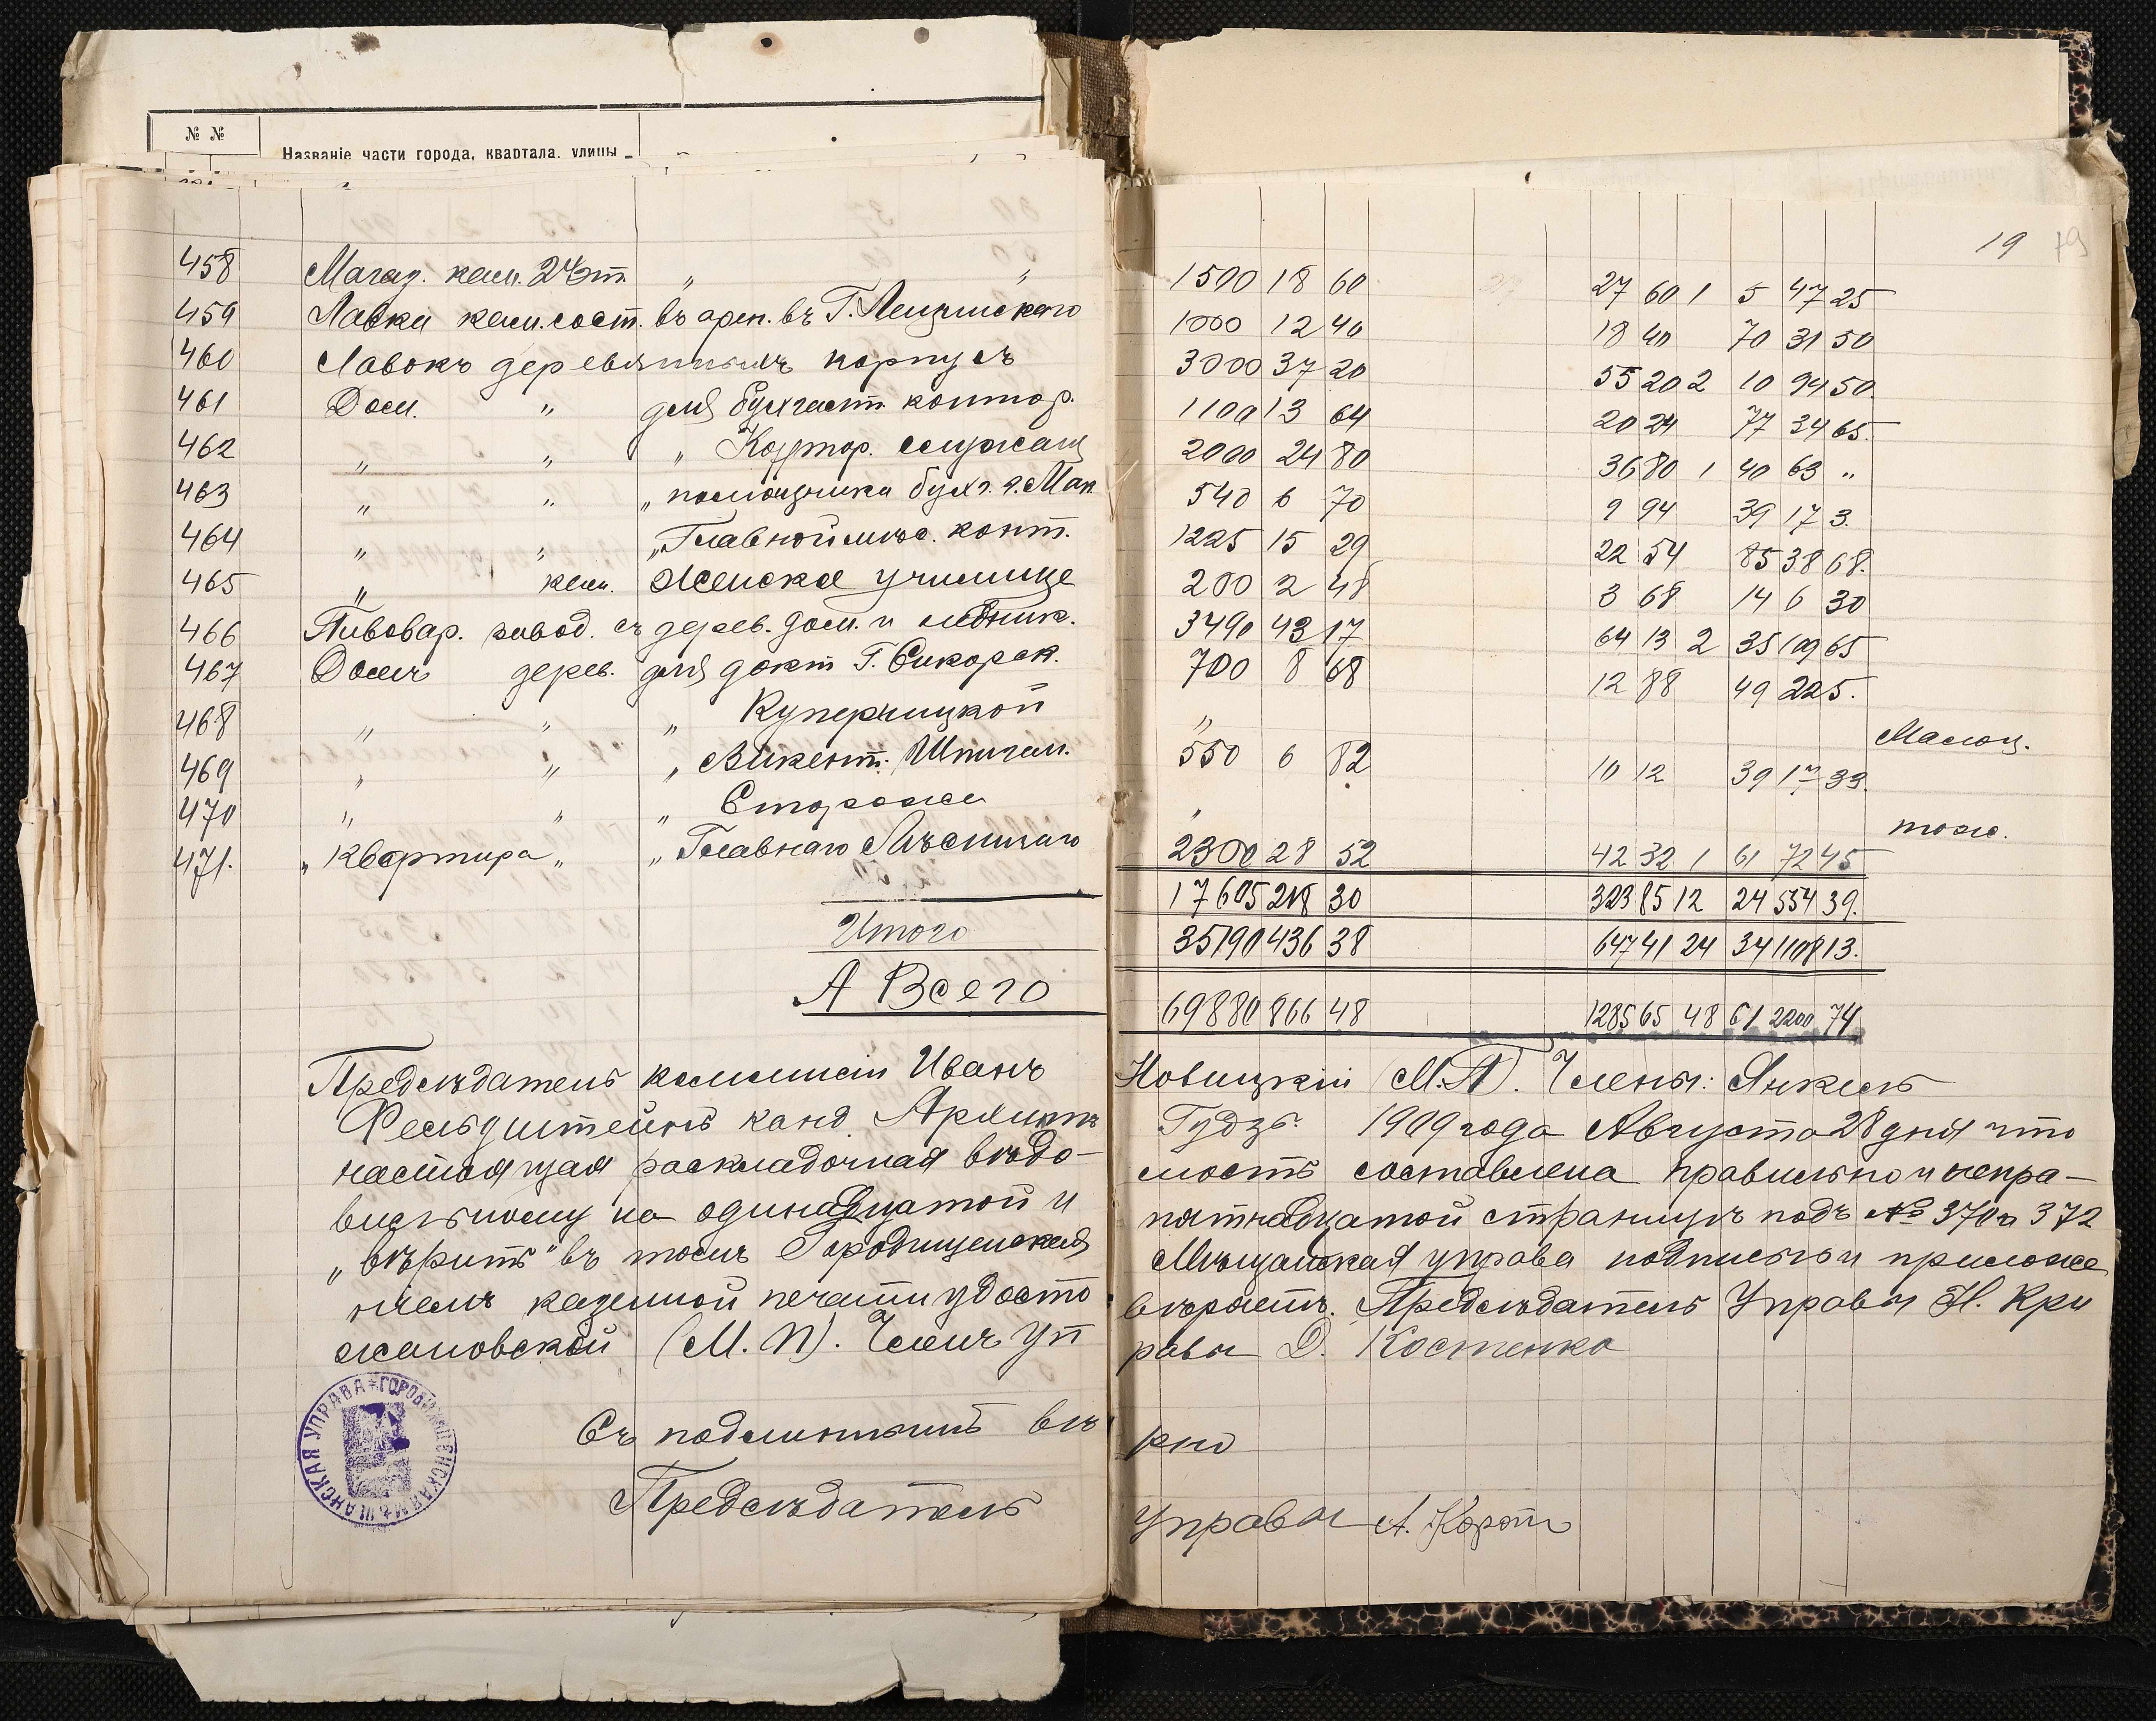 № №
Названіе части города, квартала, улицы
19
458 Магаз. кам. 2 эт. „ „ 1500 18 60 27 60 1 5 47 25
459 Лавки кам. сост. въ арен. въ Г. 1000 12 40 18 40 70 31 50
460 Лавокъ деревянныхъ корпусъ 3000 37 20 55 20 2 10 94 50
461 Дом. „ для бухгалт. контор. 1100 13 64 20 24 77 34 65
462 „ „ „ Контор. служащ 2000 24 80 36 80 1 40 63 „
463 „ „ „ помощника бухг. г. Мак 540 6 70 9 94 39 17 3
464 „ „ „ Главной лѣс. конт. 1225 15 29 22 54 85 38 68
465 „ кам. Женское училище 200 2 48 3 68 14 6 30
466 Пивовар. завод. съ дерев. дом. и ледник. 3490 43 17 64 13 2 35 109 65
467 Домъ дерев. для докт Г. Сикорск. 700 8 68 12 88 49 22 5
468 „ „ „ „ Малоц.
469 „ „ „ Викент. 550 6 82 10 12 39 17 33
470 „ „ „ Сторожа „ тож.
471. „ Квартира „ „ Главнаго Лѣсничаго 2300 28 52 42 32 1 61 72 45
17605 218 30 323 85 12 24 554 39
Итого 35190 436 38 647 41 24 34 1108 13
А Всего 69880 866 48 1285 65 48 61 2200 74
Предсѣдатель коммисіи Иванъ Новицкій (М.П). Члены: Янкель
Фельдштейнъ канд. Гудзь. 1909 года Августа 28 дня что
настоящая раскладочная вѣдо- мость составлена правильно и непра-
вильному на одинадцатой и пятнадцатой страницѣ подъ № 370 и 372
„вѣрить" въ томъ Городищенская Мѣщанская управа подписью и приложе
ніемъ казенной печати удосто вѣряетъ. Предсѣдатель Управы Н. Кри
жановскій (М.П). Членъ Уп равы Д. Костенко
Съ подлиннымъ вѣ рно
Предсѣдатель Управы А.
ГОРОДИЩЕНСКАЯ МѢЩАНСКАЯ УПРАВА